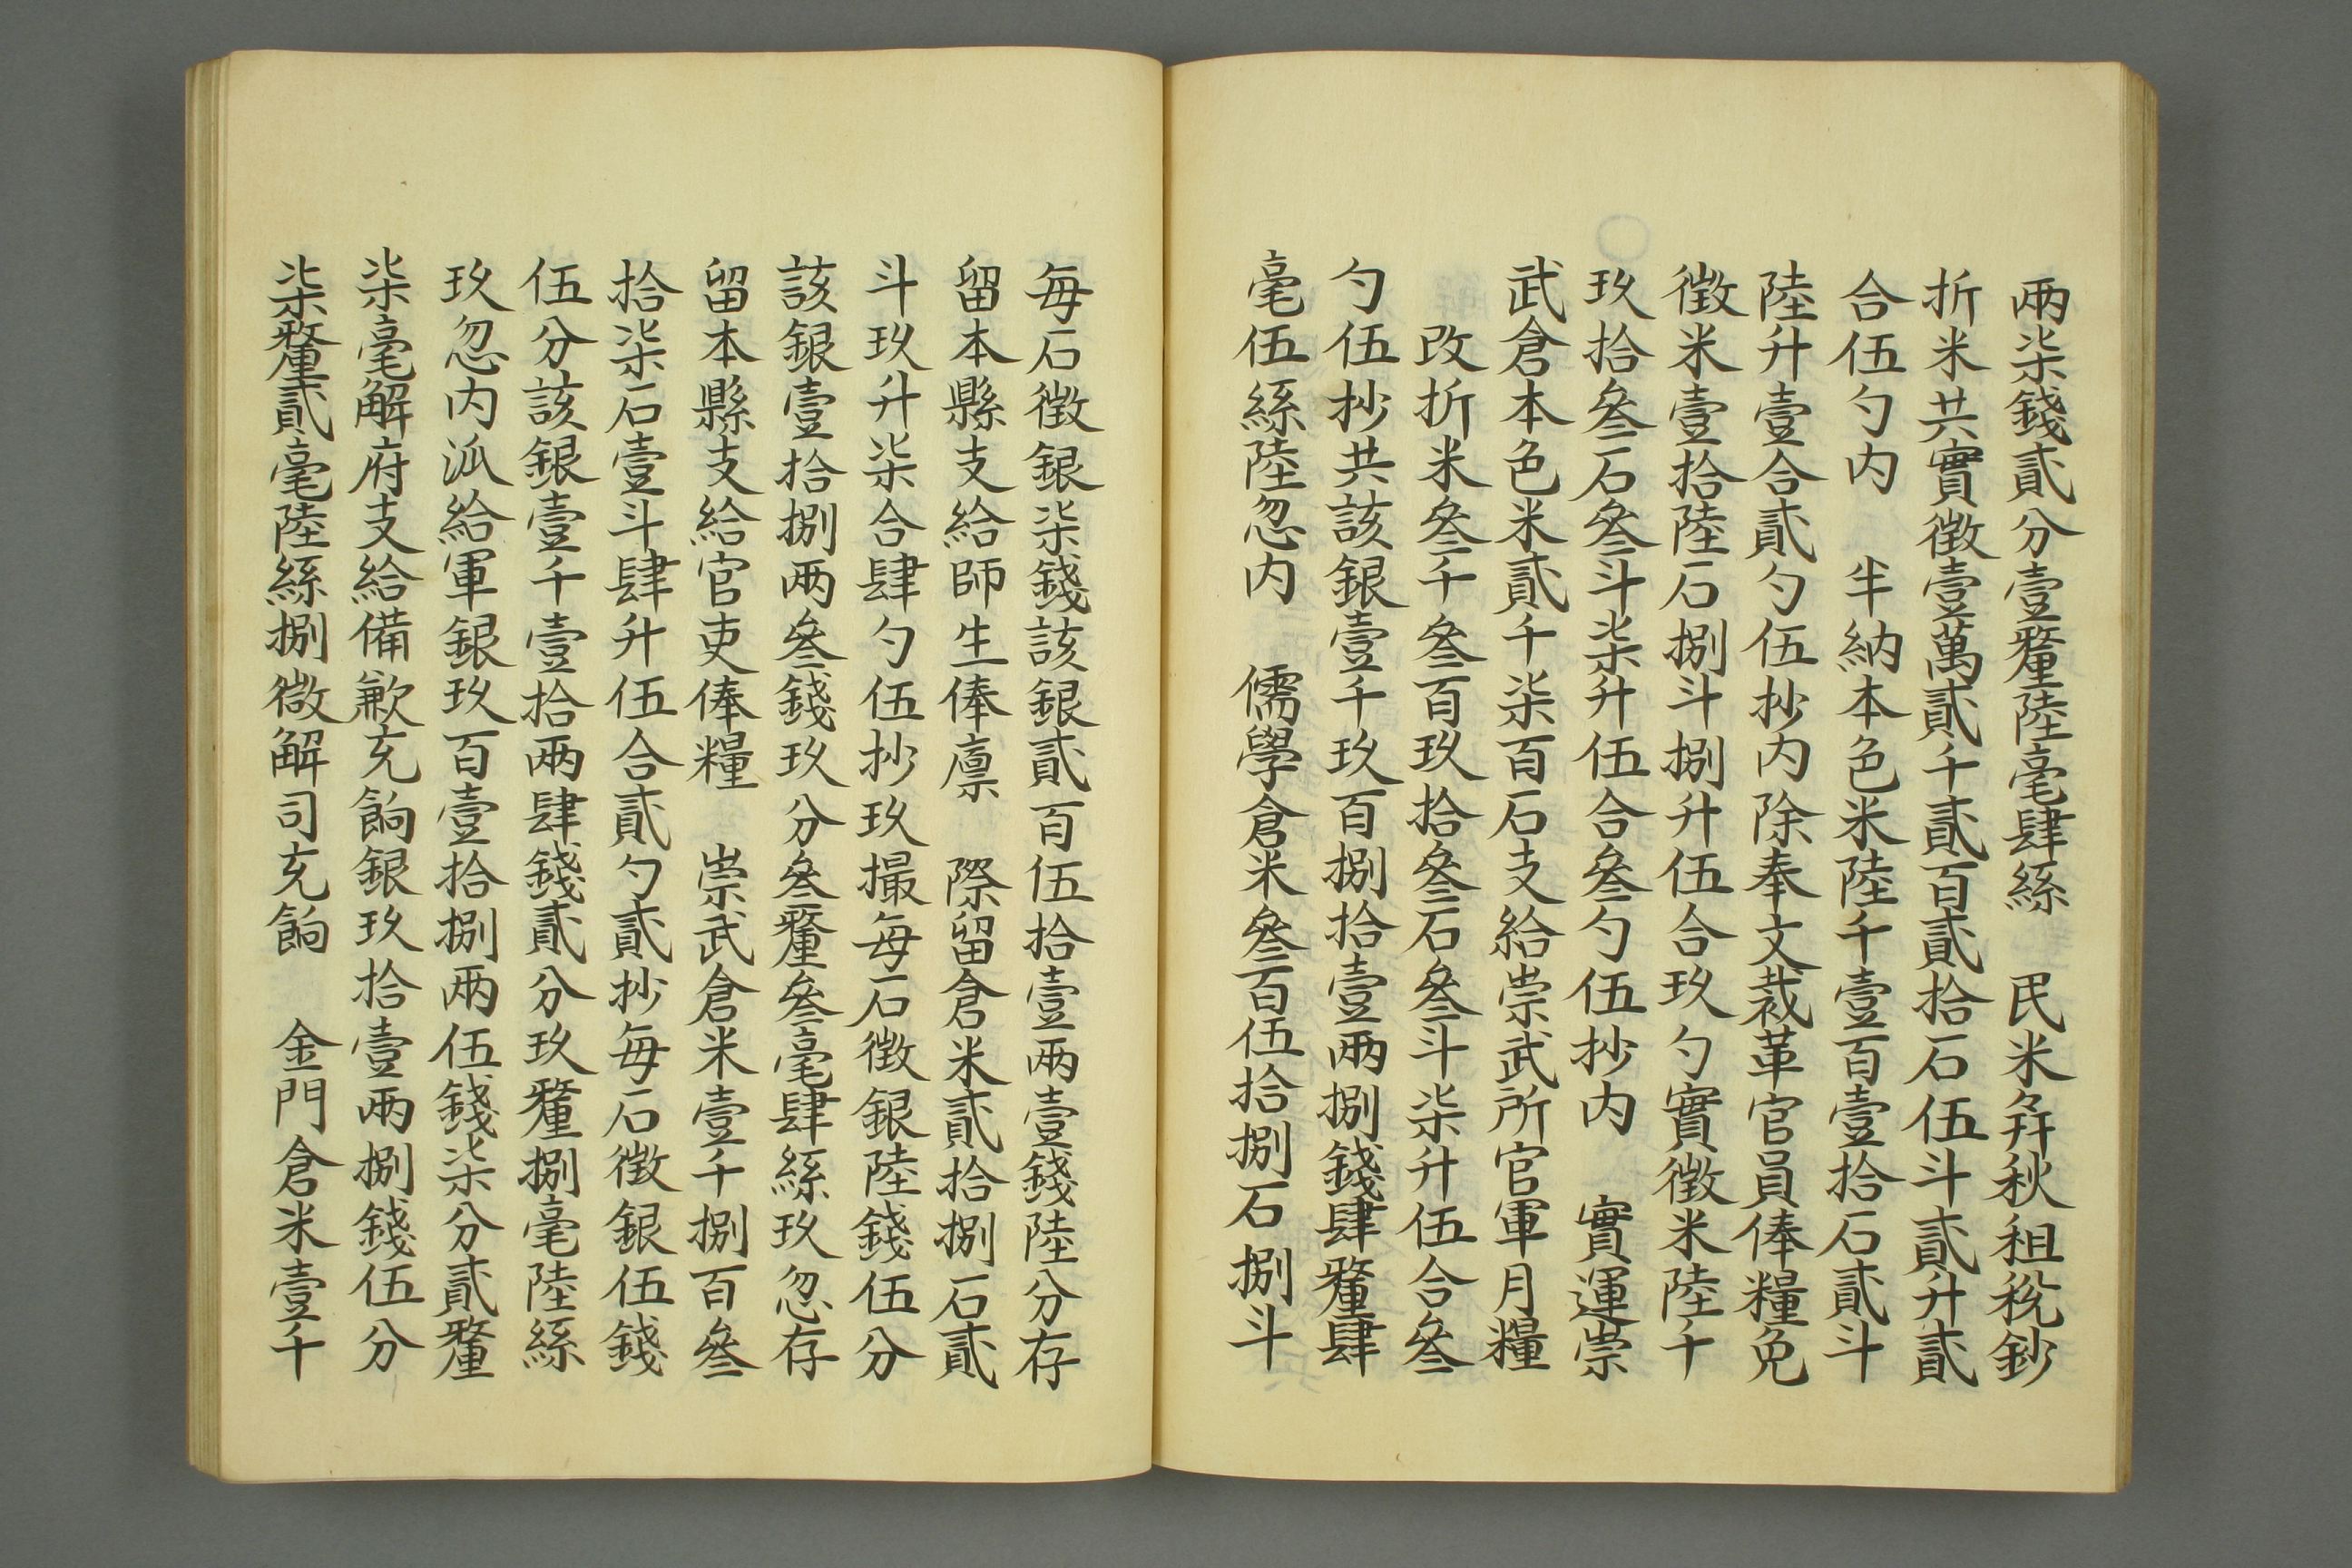 兩柒錢貳分壹釐陸毫肆絲　民米幷秋租稅鈔
折米共實徵壹萬貳千貳百貳拾石伍斗貳升貳
合伍勺內　半納本色米陸千壹百壹拾石貳斗
陸升壹合貳勺伍抄內除奉文裁革官員俸糧免
徵米壹拾陸石捌斗捌升伍合玖勺實徵米陸千
玖拾叄石叄斗柒升伍合叄勺伍抄內　實運崇
武倉本色米貳千柒百石支給崇武所官軍月糧
　改折米叄千叄百玖拾叄石叄斗柒升伍合叄
勺伍抄共該銀壹千玖百捌拾壹兩捌錢肆釐肆
毫伍絲陸忽內　儒學倉米叄百伍拾捌石捌斗
每石徵銀柒錢該銀貳百伍拾壹兩壹錢陸分存
留本縣支給師生俸廪　際留倉米貳拾捌石貳
斗玖升柒合肆勺伍抄玖撮每石徵銀陸錢伍分
該銀壹拾捌兩叄錢玖分叄釐叄毫肆絲玖忽存
留本縣支給官吏俸糧　崇武倉米壹千捌百叄
拾柒石壹斗肆升伍合貳勺貳抄每石徵銀伍錢
伍分該銀壹千壹拾兩肆錢貳分玖釐捌毫陸絲
玖忽內派給軍銀玖百壹拾捌兩伍錢柒分貳釐
柒毫解府支給備歉充餉銀玖拾壹兩捌錢伍分
柒釐貳毫陸絲捌微解司充餉　金門倉米壹千